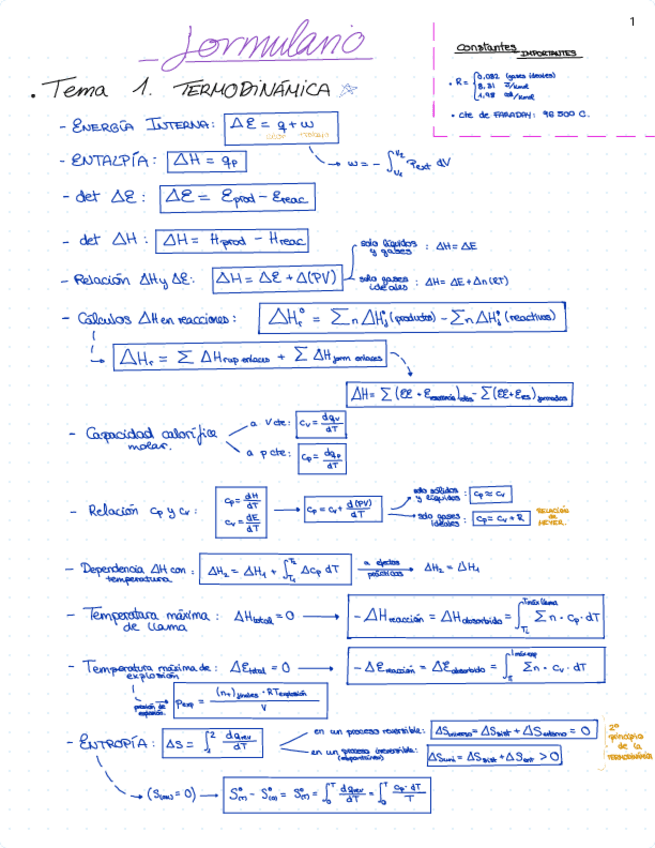 1
Formulario
constantes IMPORTANTES
• R = { 0,082 (gases ideales)
8,31 J/K mol
1,98 cal/K mol
• cte de FARADAY: 96 500 C.
• Tema 1. TERMODINÁMICA
- ENERGÍA INTERNA: ΔE = q + w
calor trabajo
w = - ∫_{V1}^{V2} Pext dV
- ENTALPÍA: ΔH = qp
- det ΔE: ΔE = Eprod - Ereac
- det ΔH: ΔH = Hprod - Hreac
- Relación ΔH y ΔE: ΔH = ΔE + Δ(PV)
solo líquidos y gases : ΔH = ΔE
solo gases ideales : ΔH = ΔE + Δn(RT)
- Cálculos ΔH en reacciones: ΔHr° = Σn ΔHf°(productos) - Σn ΔHf°(reactivos)
ΔHr = Σ ΔHrup enlaces + Σ ΔHform enlaces
ΔH = Σ(EE + Eresonancia) - Σ(EE + Eres)formados
- Capacidad calorífica molar.
a V cte: cv = dqv/dT
a p cte: cp = dqp/dT
- Relación cp y cv:
cp = dH/dT
cv = dE/dT
→ cp = cv + d(PV)/dT
solo sólidos y líquidos : cp ≈ cv
solo gases ideales : cp = cv + R
RELACIÓN DE MEYER.
- Dependencia ΔH con temperatura : ΔH2 = ΔH1 + ∫_{T1}^{T2} Δcp dT
a efectos prácticos → ΔH2 = ΔH1
- Temperatura máxima de llama : ΔHtotal = 0 → -ΔHreacción = ΔHabsorbido = ∫_{Ti}^{Tmáx llama} Σn · cp · dT
- Temperatura máxima de explosión : ΔEtotal = 0 → -ΔEreacción = ΔEabsorbido = ∫ Σn · cv · dT
presión de explosión. Pexp = (nT)finales · RTexplosión / V
- ENTROPÍA: ΔS = ∫_1^2 dqrev/dT
en un proceso reversible: ΔSuniverso = ΔSsist + ΔSentorno = 0
en un proceso irreversible: (espontáneo) ΔSuni = ΔSsist + ΔSent > 0
2º principio de la TERMODINÁMICA
→ S°(T) - S°(0) = S°(T) = ∫_0^T dqrev/dT = ∫_0^T cp · dT/T